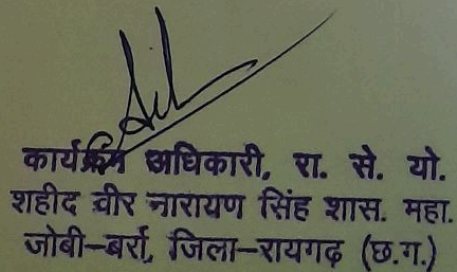 कार्यक्रम अधिकारी, रा. से. यो.
शहीद वीर नारायण सिंह शास. महा.
जोबी-बर्रा, जिला-रायगढ़ (छ.ग.)